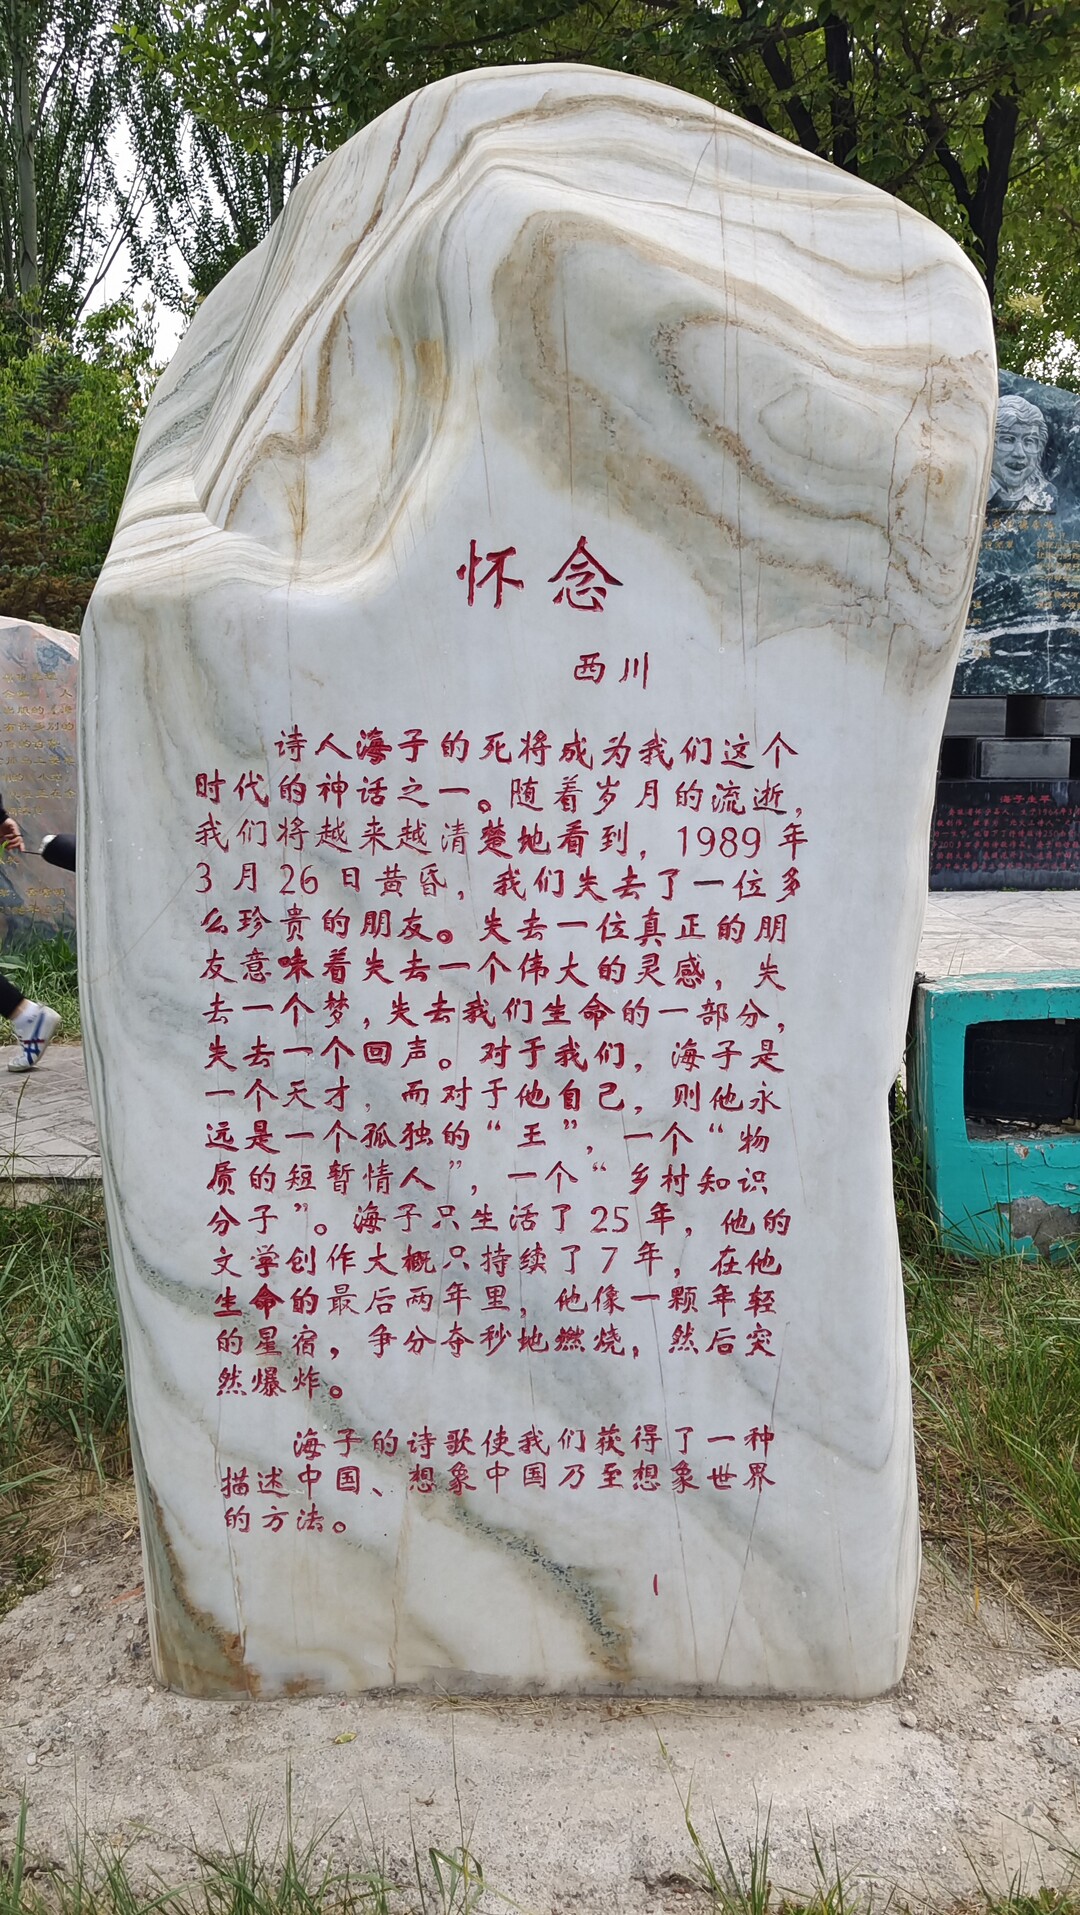 怀念
西川
诗人海子的死将成为我们这个
时代的神话之一。随着岁月的流逝，
我们将越来越清楚地看到，1989年
3月26日黄昏，我们失去了一位多
么珍贵的朋友。失去一位真正的朋
友意味着失去一个伟大的灵感，失
去一个梦，失去我们生命的一部分，
失去一个回声。对于我们，海子是
一个天才，而对于他自己，则他永
远是一个孤独的“王”，一个“物
质的短暂情人”，一个“乡村知识
分子”。海子只生活了25年，他的
文学创作大概只持续了7年，在他
生命的最后两年里，他像一颗年轻
的星宿，争分夺秒地燃烧，然后突
然爆炸。
海子的诗歌使我们获得了一种
描述中国、想象中国乃至想象世界
的方法。
海子生平